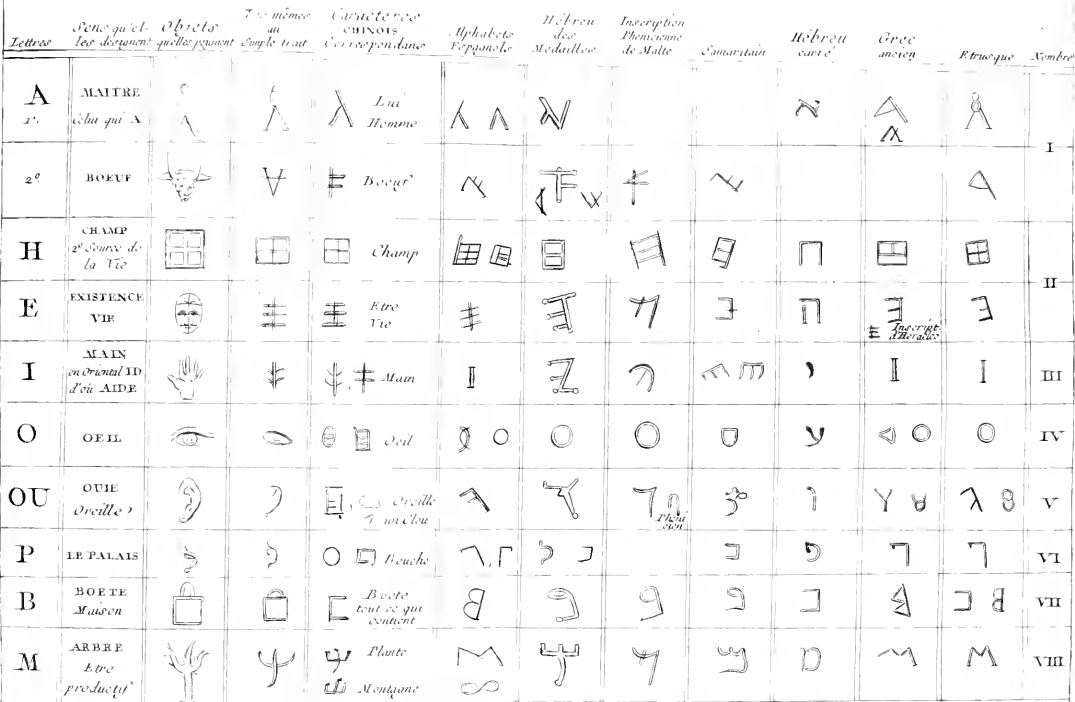 Lettres
Sens qu'el-
les designent
Objets
quelles peignent
Les mêmes
au
Simple trait
Caracteres
CHINOIS
Correspondans
Alphabets
Espagnols
Hébreu
des
Medailles
Inscription
Phenicienne
de Malte
Samaritain
Hébreu
carré
Grec
ancien
Etrusque
Nombre
A
1º.
MAITRE
Celui qui A
Lui
Homme
I
2º.
BOEUF
Boeuf
H
CHAMP
2º Source de
la Vie
Champ
II
E
EXISTENCE
VIE
Etre
Vie
Inscript.
d'Heraclée
I
MAIN
en Oriental ID
d'où AIDE
Main
III
O
OEIL
Oeil
IV
OU
OUIE
Oreille
Oreille
un Clou
V
P
LE PALAIS
Bouche
VI
B
BOETE
Maison
Boete
tout ce qui
contient
VII
M
ARBRE
Etre
productif
Plante
Montagne
VIII